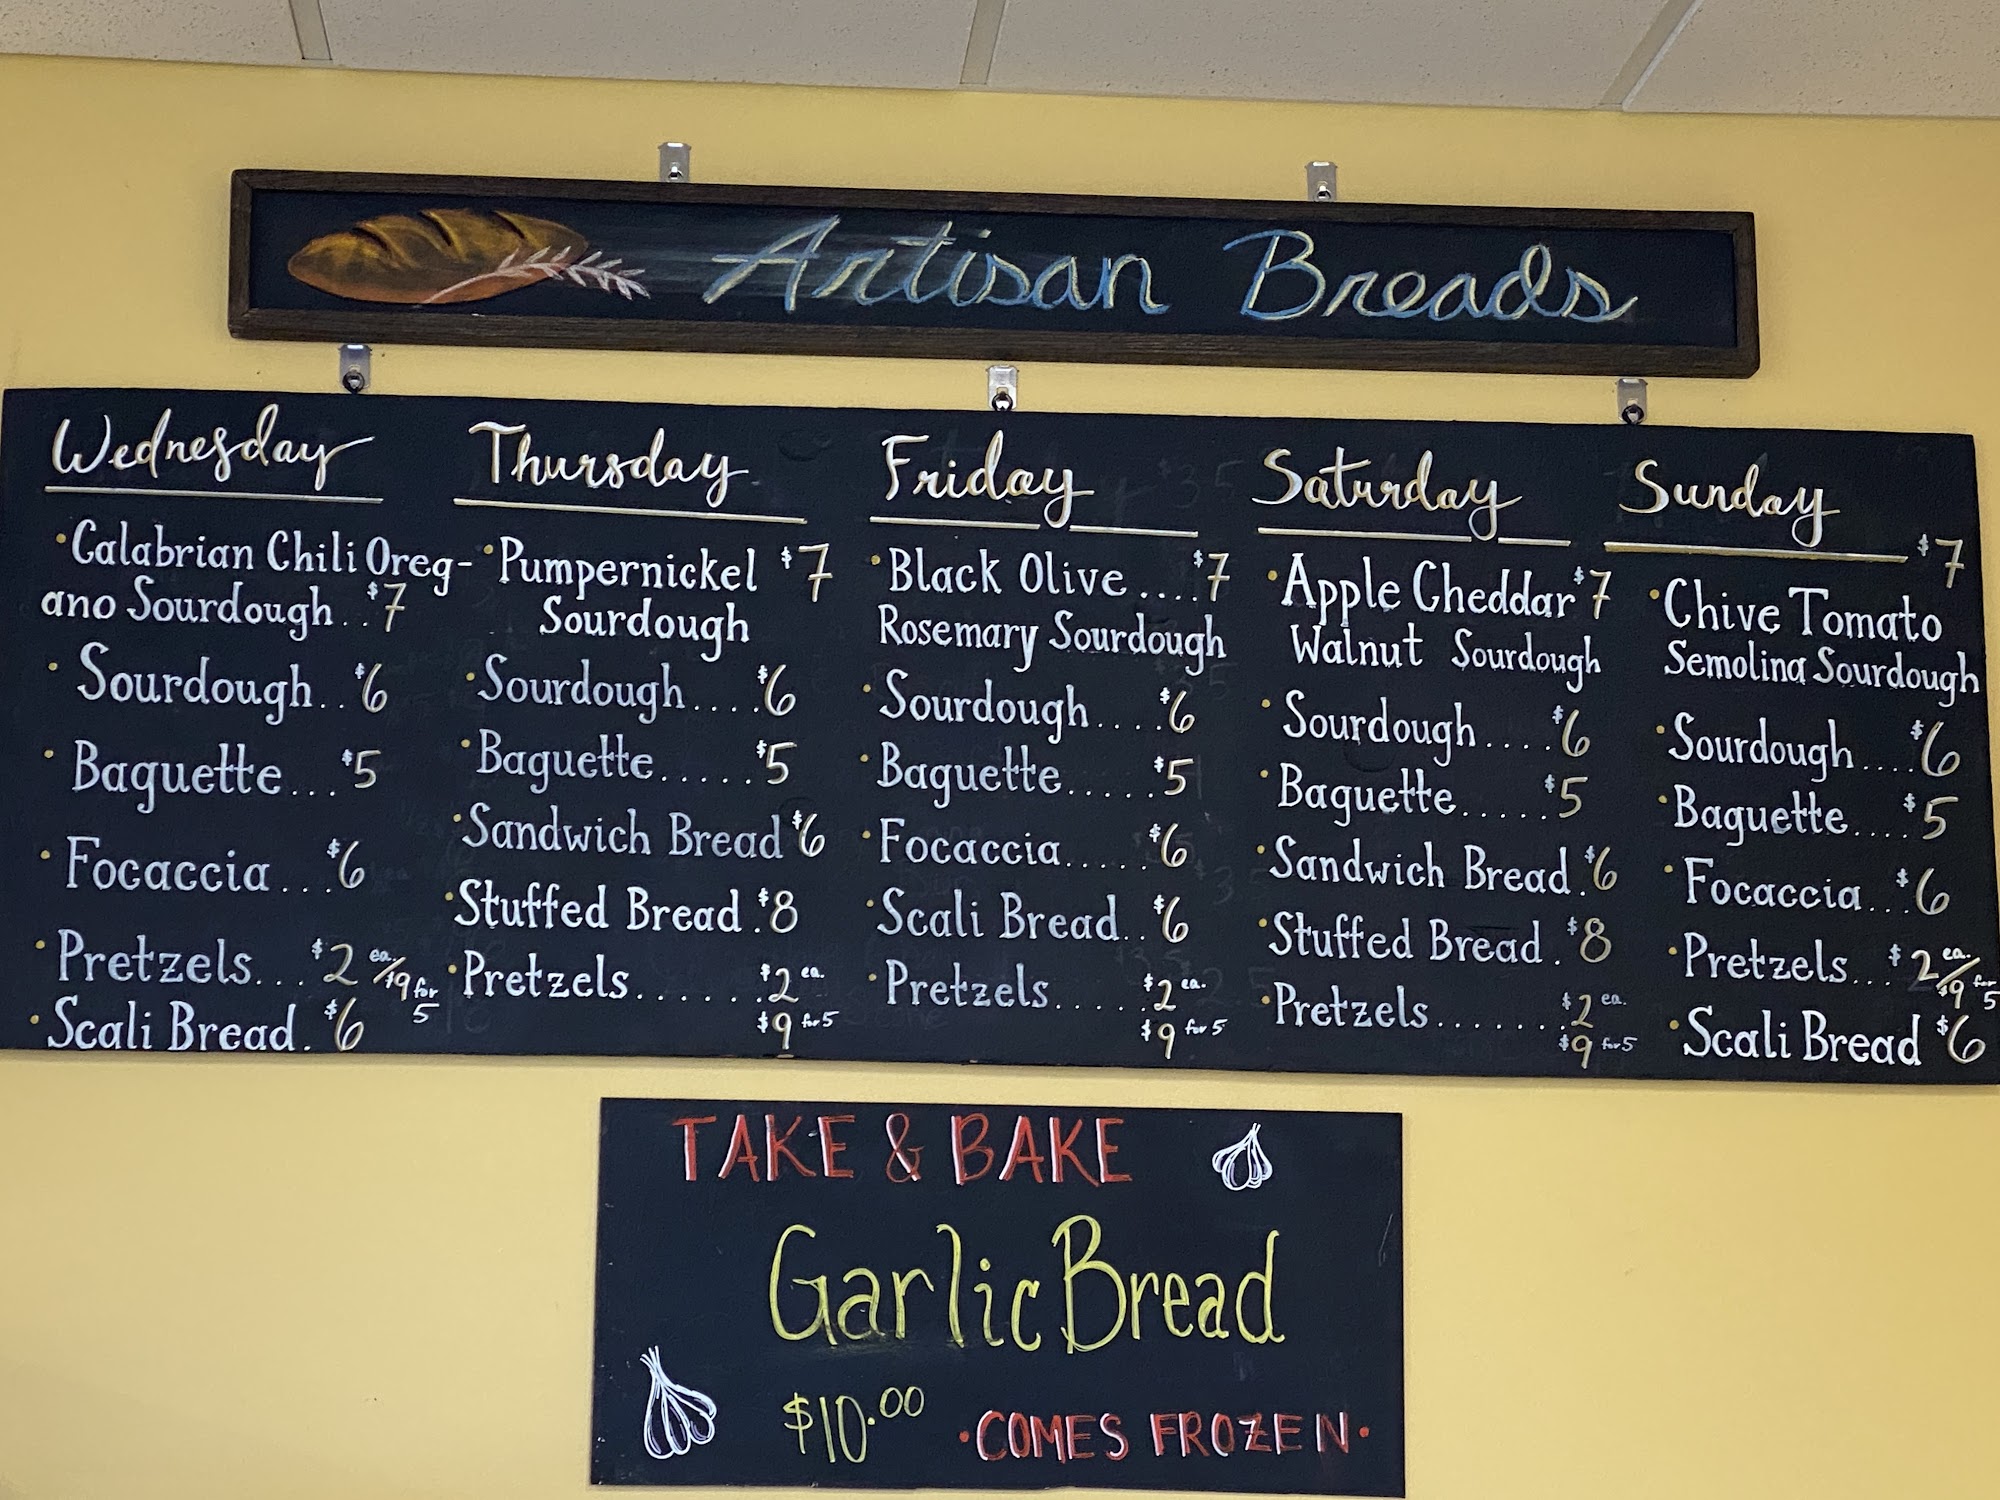 Artisan Breads
Wednesday
• Calabrian Chili Oreg-
ano Sourdough.. $7
• Sourdough.. $6
• Baguette... $5
• Focaccia... $6
• Pretzels... $2 ea./$9 for 5
• Scali Bread. $6
Thursday
• Pumpernickel $7
Sourdough
• Sourdough.... $6
• Baguette..... $5
• Sandwich Bread $6
• Stuffed Bread. $8
• Pretzels...... $2 ea.
$9 for 5
Friday
• Black Olive.... $7
Rosemary Sourdough
• Sourdough.... $6
• Baguette..... $5
• Focaccia..... $6
• Scali Bread.. $6
• Pretzels..... $2 ea.
$9 for 5
Saturday
• Apple Cheddar $7
Walnut Sourdough
• Sourdough.... $6
• Baguette..... $5
• Sandwich Bread. $6
• Stuffed Bread. $8
• Pretzels....... $2 ea.
$9 for 5
Sunday
$7
• Chive Tomato
Semolina Sourdough
• Sourdough.... $6
• Baguette.... $5
• Focaccia... $6
• Pretzels... $2 ea./$9 for 5
• Scali Bread $6
TAKE & BAKE
Garlic Bread
$10.00 • COMES FROZEN •